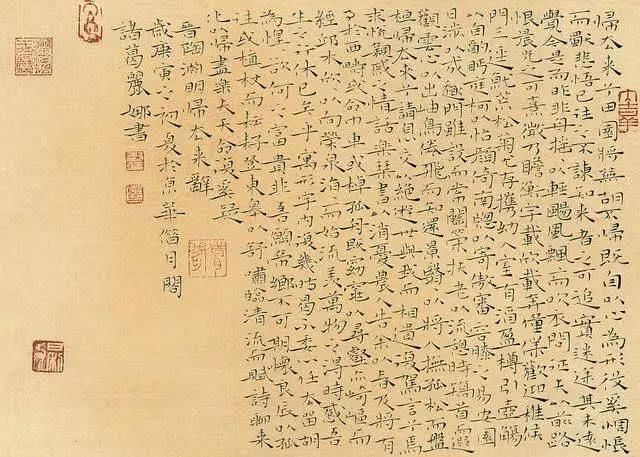 歸去來兮田園將蕪胡不歸既自以心為形役奚惆悵
而獨悲悟已往之不諫知來者之可追實迷途其未遠
覺今是而昨非舟搖以輕颺風飄而吹衣問征夫以前路
恨晨光之熹微乃瞻衡宇載欣載奔僮僕歡迎稚候
門三逕就荒松菊猶存攜幼入室有酒盈樽引壺觴
以自酌眄庭柯以怡顏倚南牕以寄傲審容膝之易安園
日涉以成趣門雖設而常關策扶老以流憩時矯首而遐
觀雲心以出岫鳥倦飛而知還景翳以將入撫孤松而盤
桓歸去來兮請息交以絕游世與我而相遺復駕言兮焉
求悅親戚之情話樂琴書以消憂農人告余以春及將有
事於西疇或命巾車或棹孤舟既窈窕以尋壑亦崎嶇而
經邱木欣以向榮泉涓而始流羨萬物之得時感吾
生之行休已矣乎寓形宇內復幾時曷不委心任去留胡
為惶欲何之富貴非吾願帝鄉不可期懷良辰以孤
往或植杖而耘耔登東皋以舒嘯臨清流而賦詩聊乘
化以歸盡樂夫天命復奚疑
晉陶淵明歸去來辭
歲庚寅之初夏於京華月閣
諸葛麗娜書